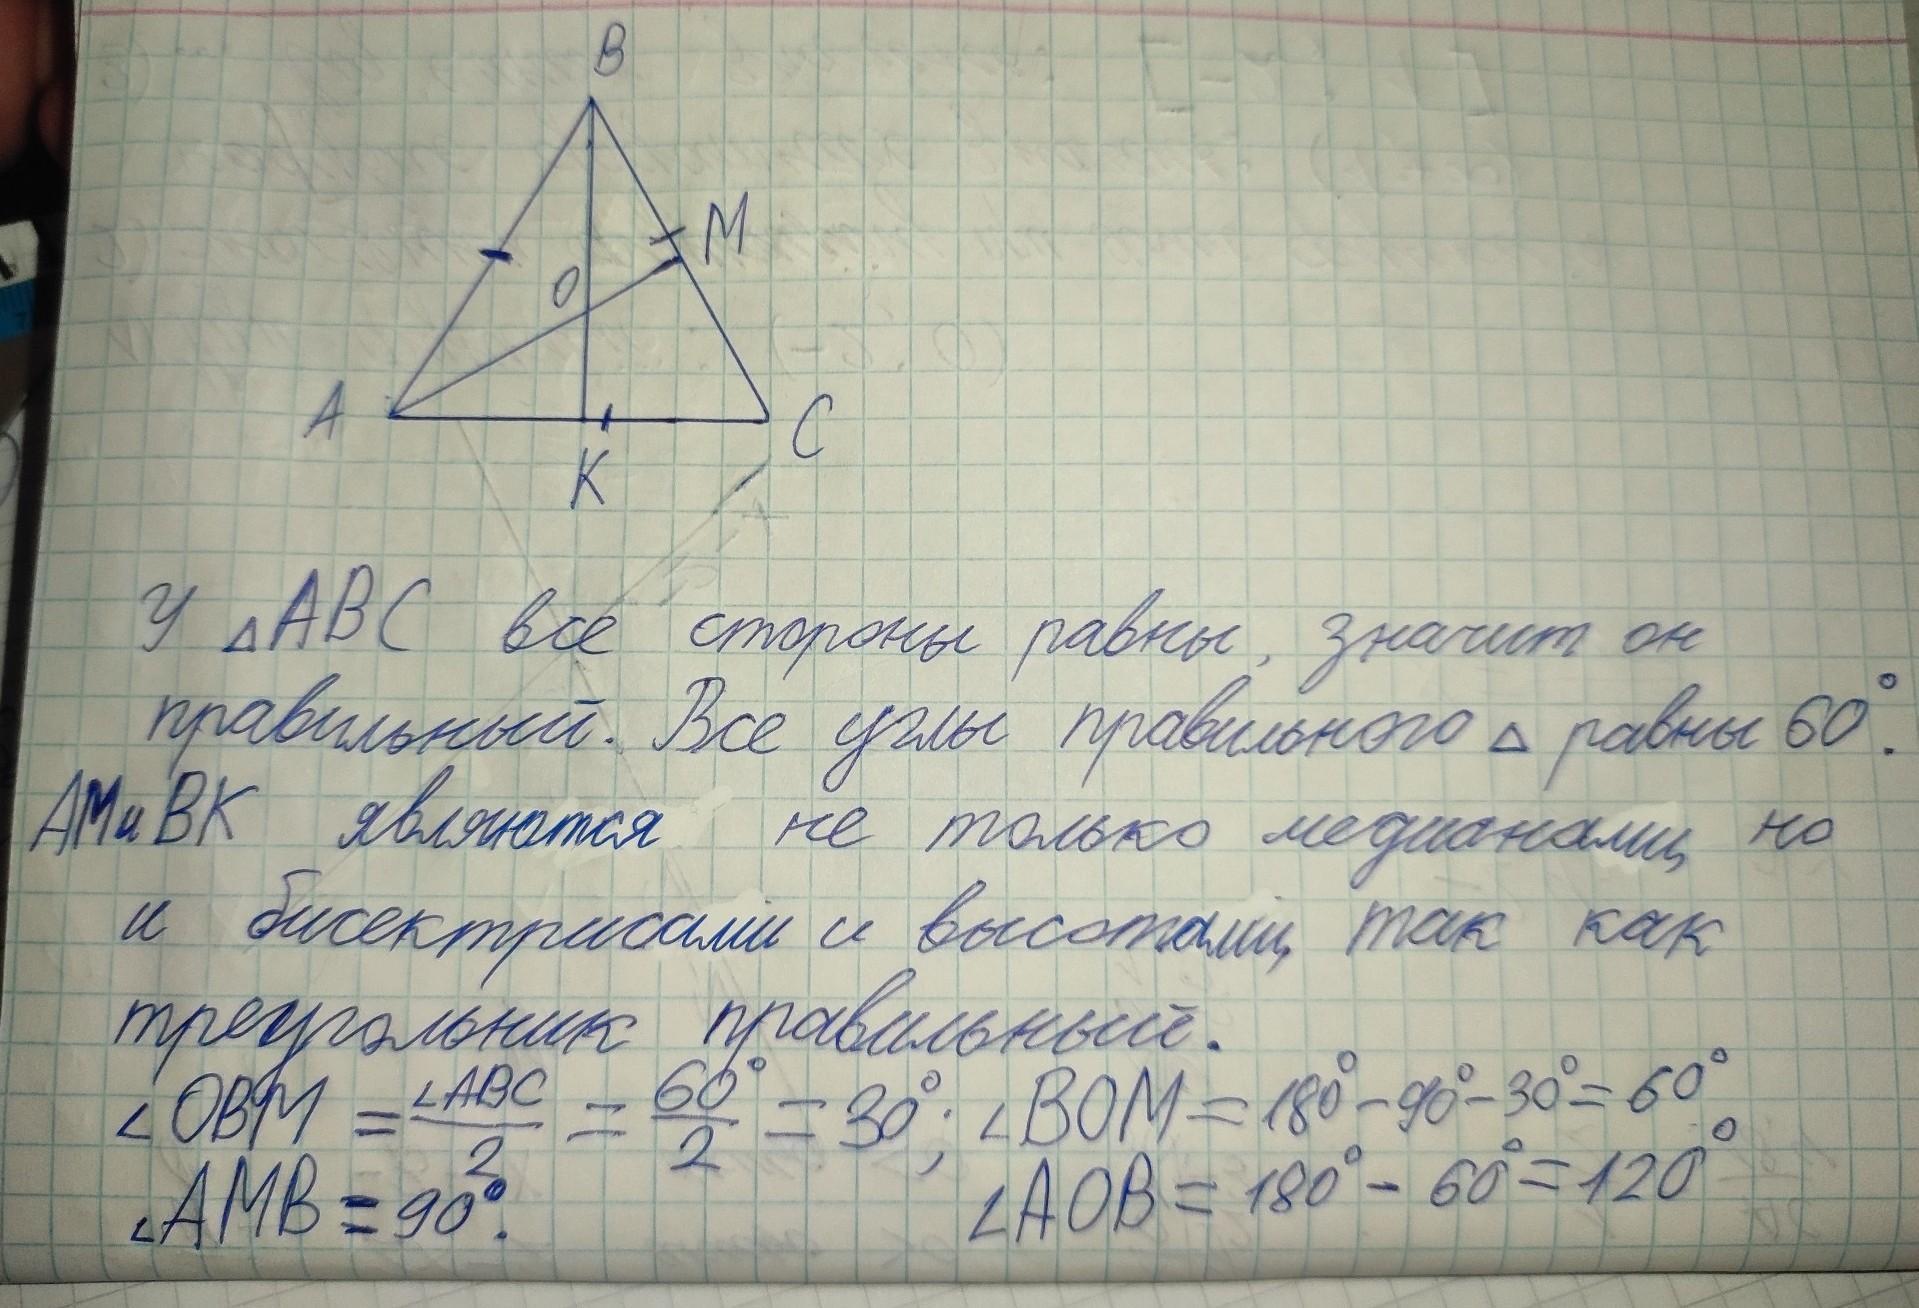 B
M
O
A
C
K
У △ABC все стороны равны, значит он
правильный. Все углы правильного △ равны 60°.
AM и BK являются не только медианами, но
и бисектрисами и высотами, так как
треугольник правильный.
∠OBM = ∠ABC/2 = 60°/2 = 30°; ∠BOM = 180° - 90° - 30° = 60°
∠AMB = 90°. ∠AOB = 180° - 60° = 120°